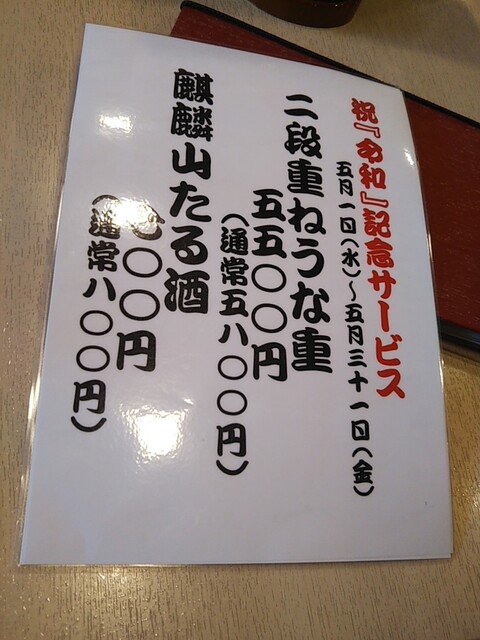 祝『令和』記念サービス
五月一日(水)~五月三十一日(金)
二段重ねうな重
五五〇〇円
(通常五八〇〇円)
麒麟山たる酒
〇〇円
(通常八〇〇円)